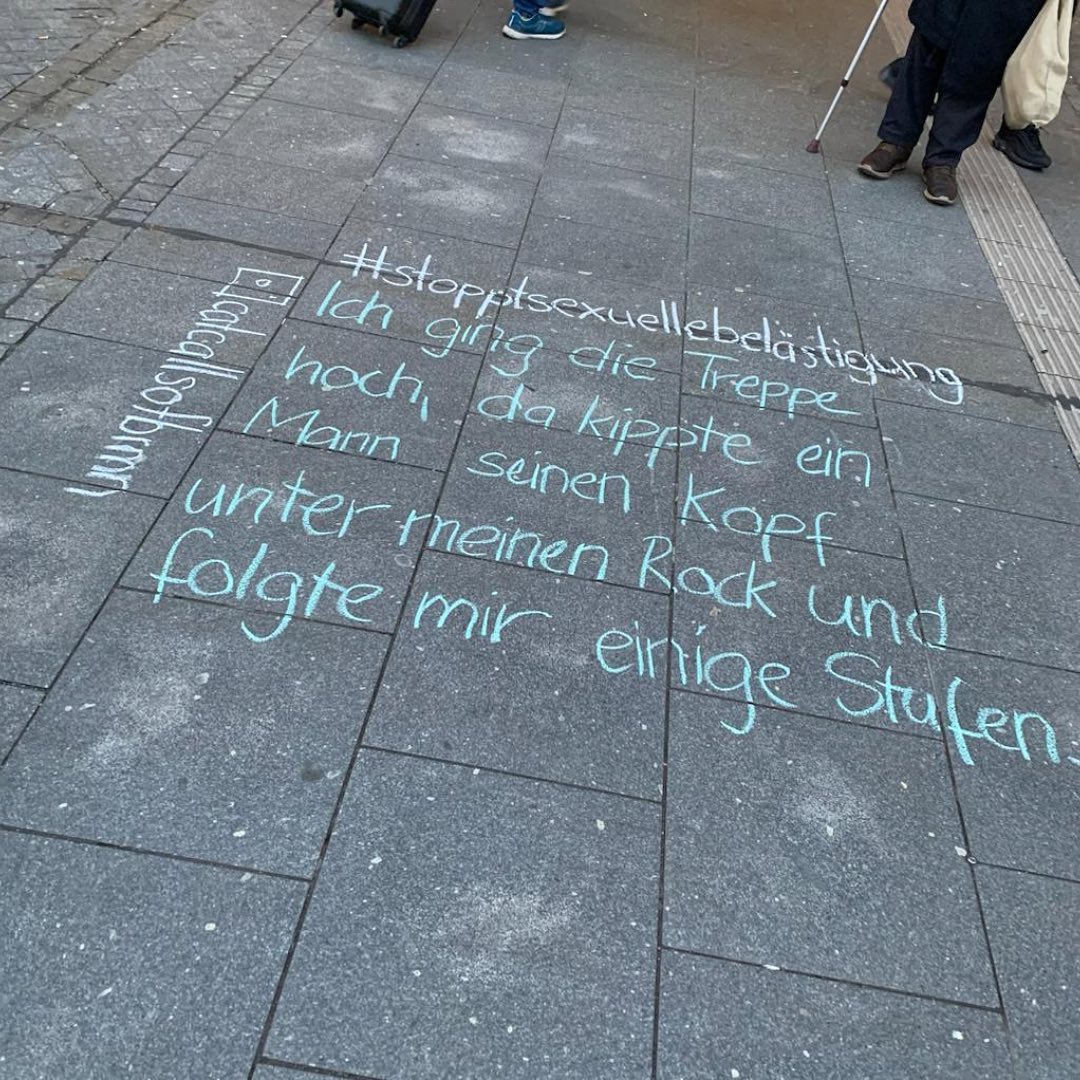 #stopptsexuellebelästigung
Ich ging die Treppe
hoch, da kippte ein
Mann seinen Kopf
unter meinen Rock und
folgte mir einige Stufen.
catcallsofbrmn